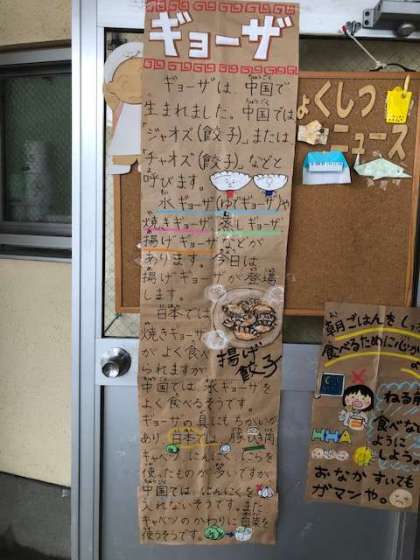 ギョーザ
ギョーザは、中国で
生まれました。中国では
「ジャオズ(餃子)」または
「チャオズ(餃子)」などと
呼びます。
水ギョーザ(ゆでギョーザ)や
焼きギョーザ、蒸しギョーザ、
揚げギョーザなどが
あります。今日は
揚げギョーザが登場
します。
日本では
焼きギョーザ
がよく食べ
られますが
中国では、水ギョーザを
よく食べるそうです。
ギョーザの具にもちがいが
あり、日本では、豚ひき肉
キャベツ、にんにくを
使ったものが多いですが
中国では、にんにくを
入れないそうです。また
キャベツのかわりに白菜を
使うそうです。
揚げ
餃子
ょくしつ
ニュース
朝ごはんをし
食べるために心が
ねる前
食べな
ように
しよう。
おなかすいても
ガマンや。